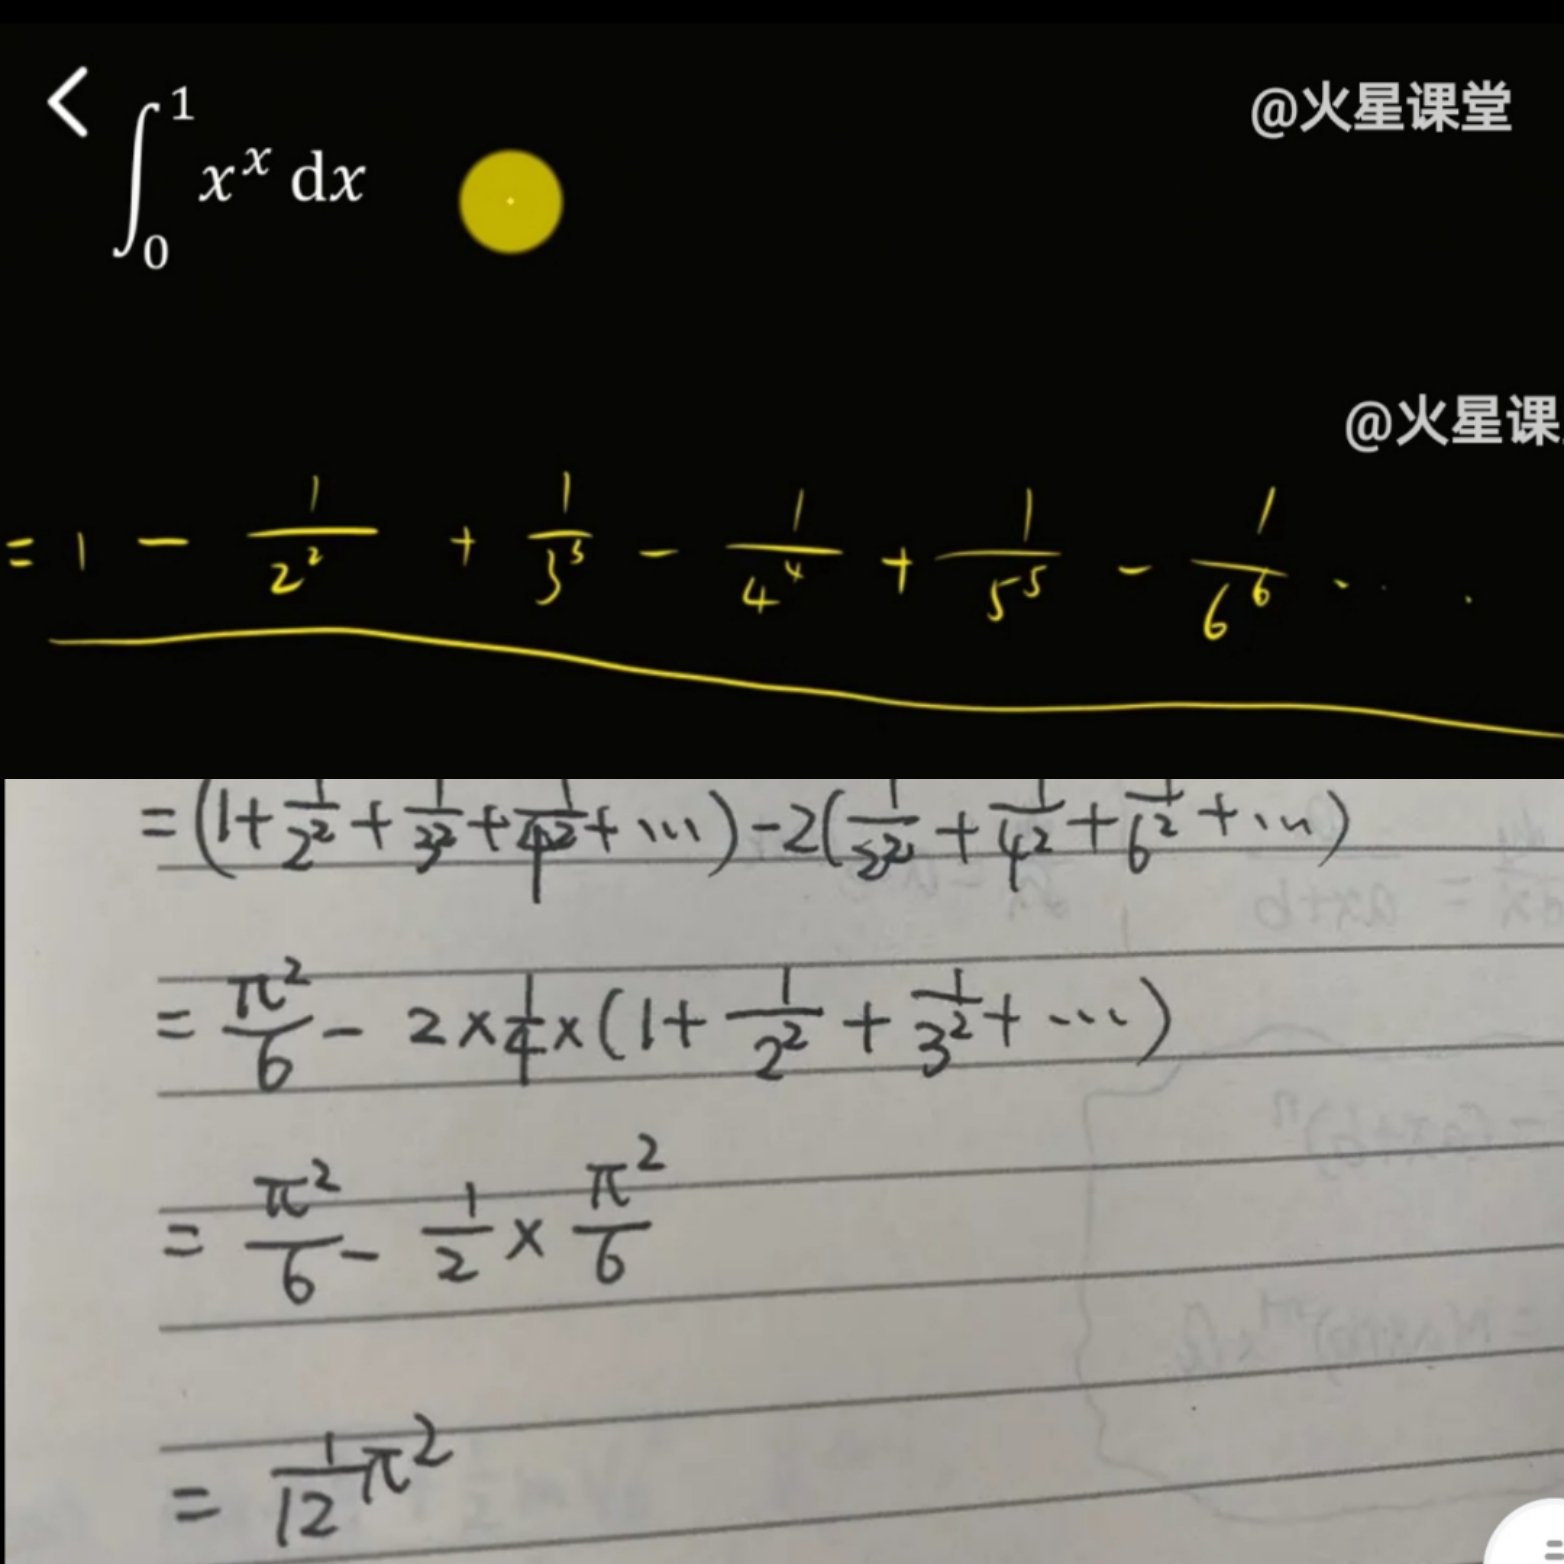 @火星课堂
∫₀¹ xˣ dx
@火星课
= 1 - 1/2² + 1/3³ - 1/4⁴ + 1/5⁵ - 1/6⁶ ...
= (1 + 1/2² + 1/3² + 1/4² + ...) - 2(1/2² + 1/4² + 1/6² + ...)
= π²/6 - 2 × 1/4 × (1 + 1/2² + 1/3² + ...)
= π²/6 - 1/2 × π²/6
= 1/12 π²